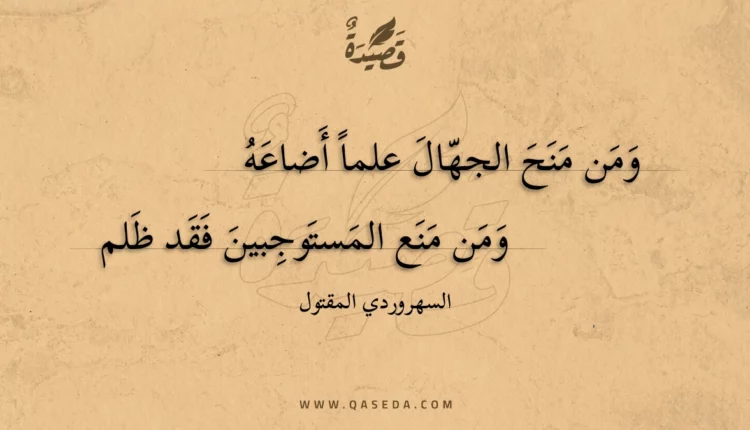 قَصِيْدَةٌ
وَمَن مَنَحَ الجهّالَ علماً أَضاعَهُ
وَمَن مَنَع المَستَوجِبينَ فَقَد ظَلم
السهروردي المقتول
WWW.QASEDA.COM